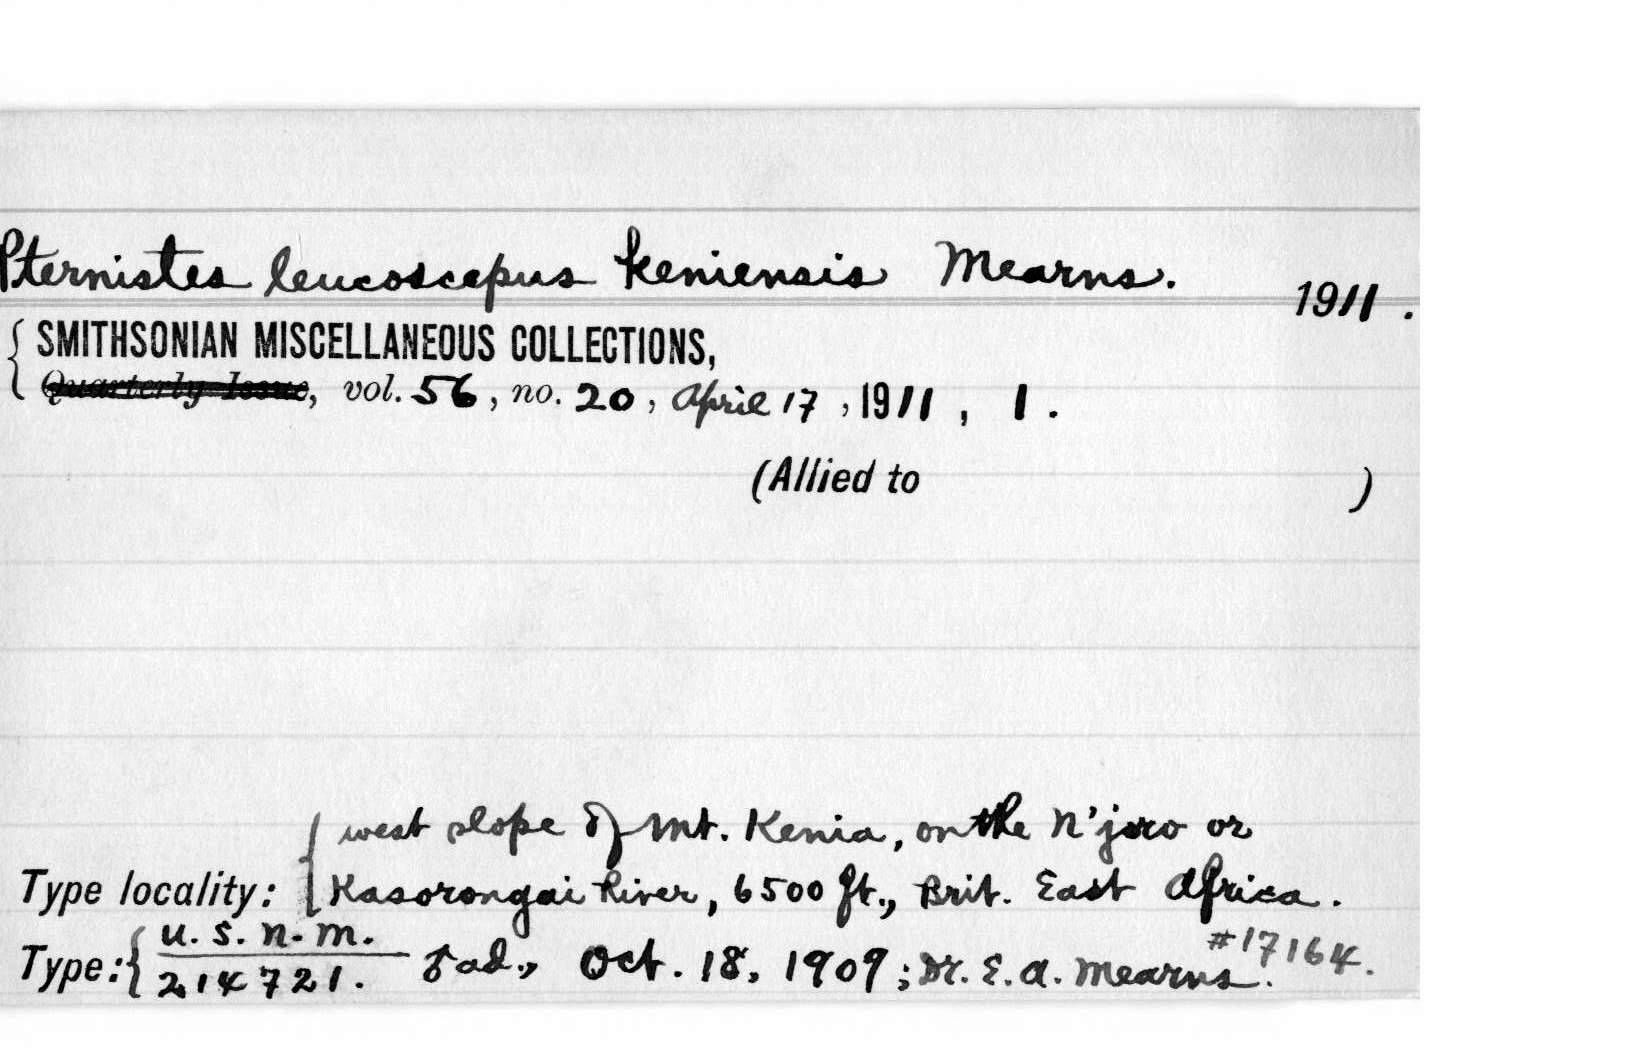 Pternistes leucoscepus keniensis Mearns.
1911.
SMITHSONIAN MISCELLANEOUS COLLECTIONS,
Quarterly Issue, vol. 56, no. 20, April 17, 1911, 1.
(Allied to )
west slope of Mt. Kenia, on the N'joro or
Type locality: Kasorongai River, 6500 ft., Brit. East Africa.
U.S.N.M. #17164.
Type: 214721. ad., Oct. 18, 1909; Dr. E. A. Mearns.